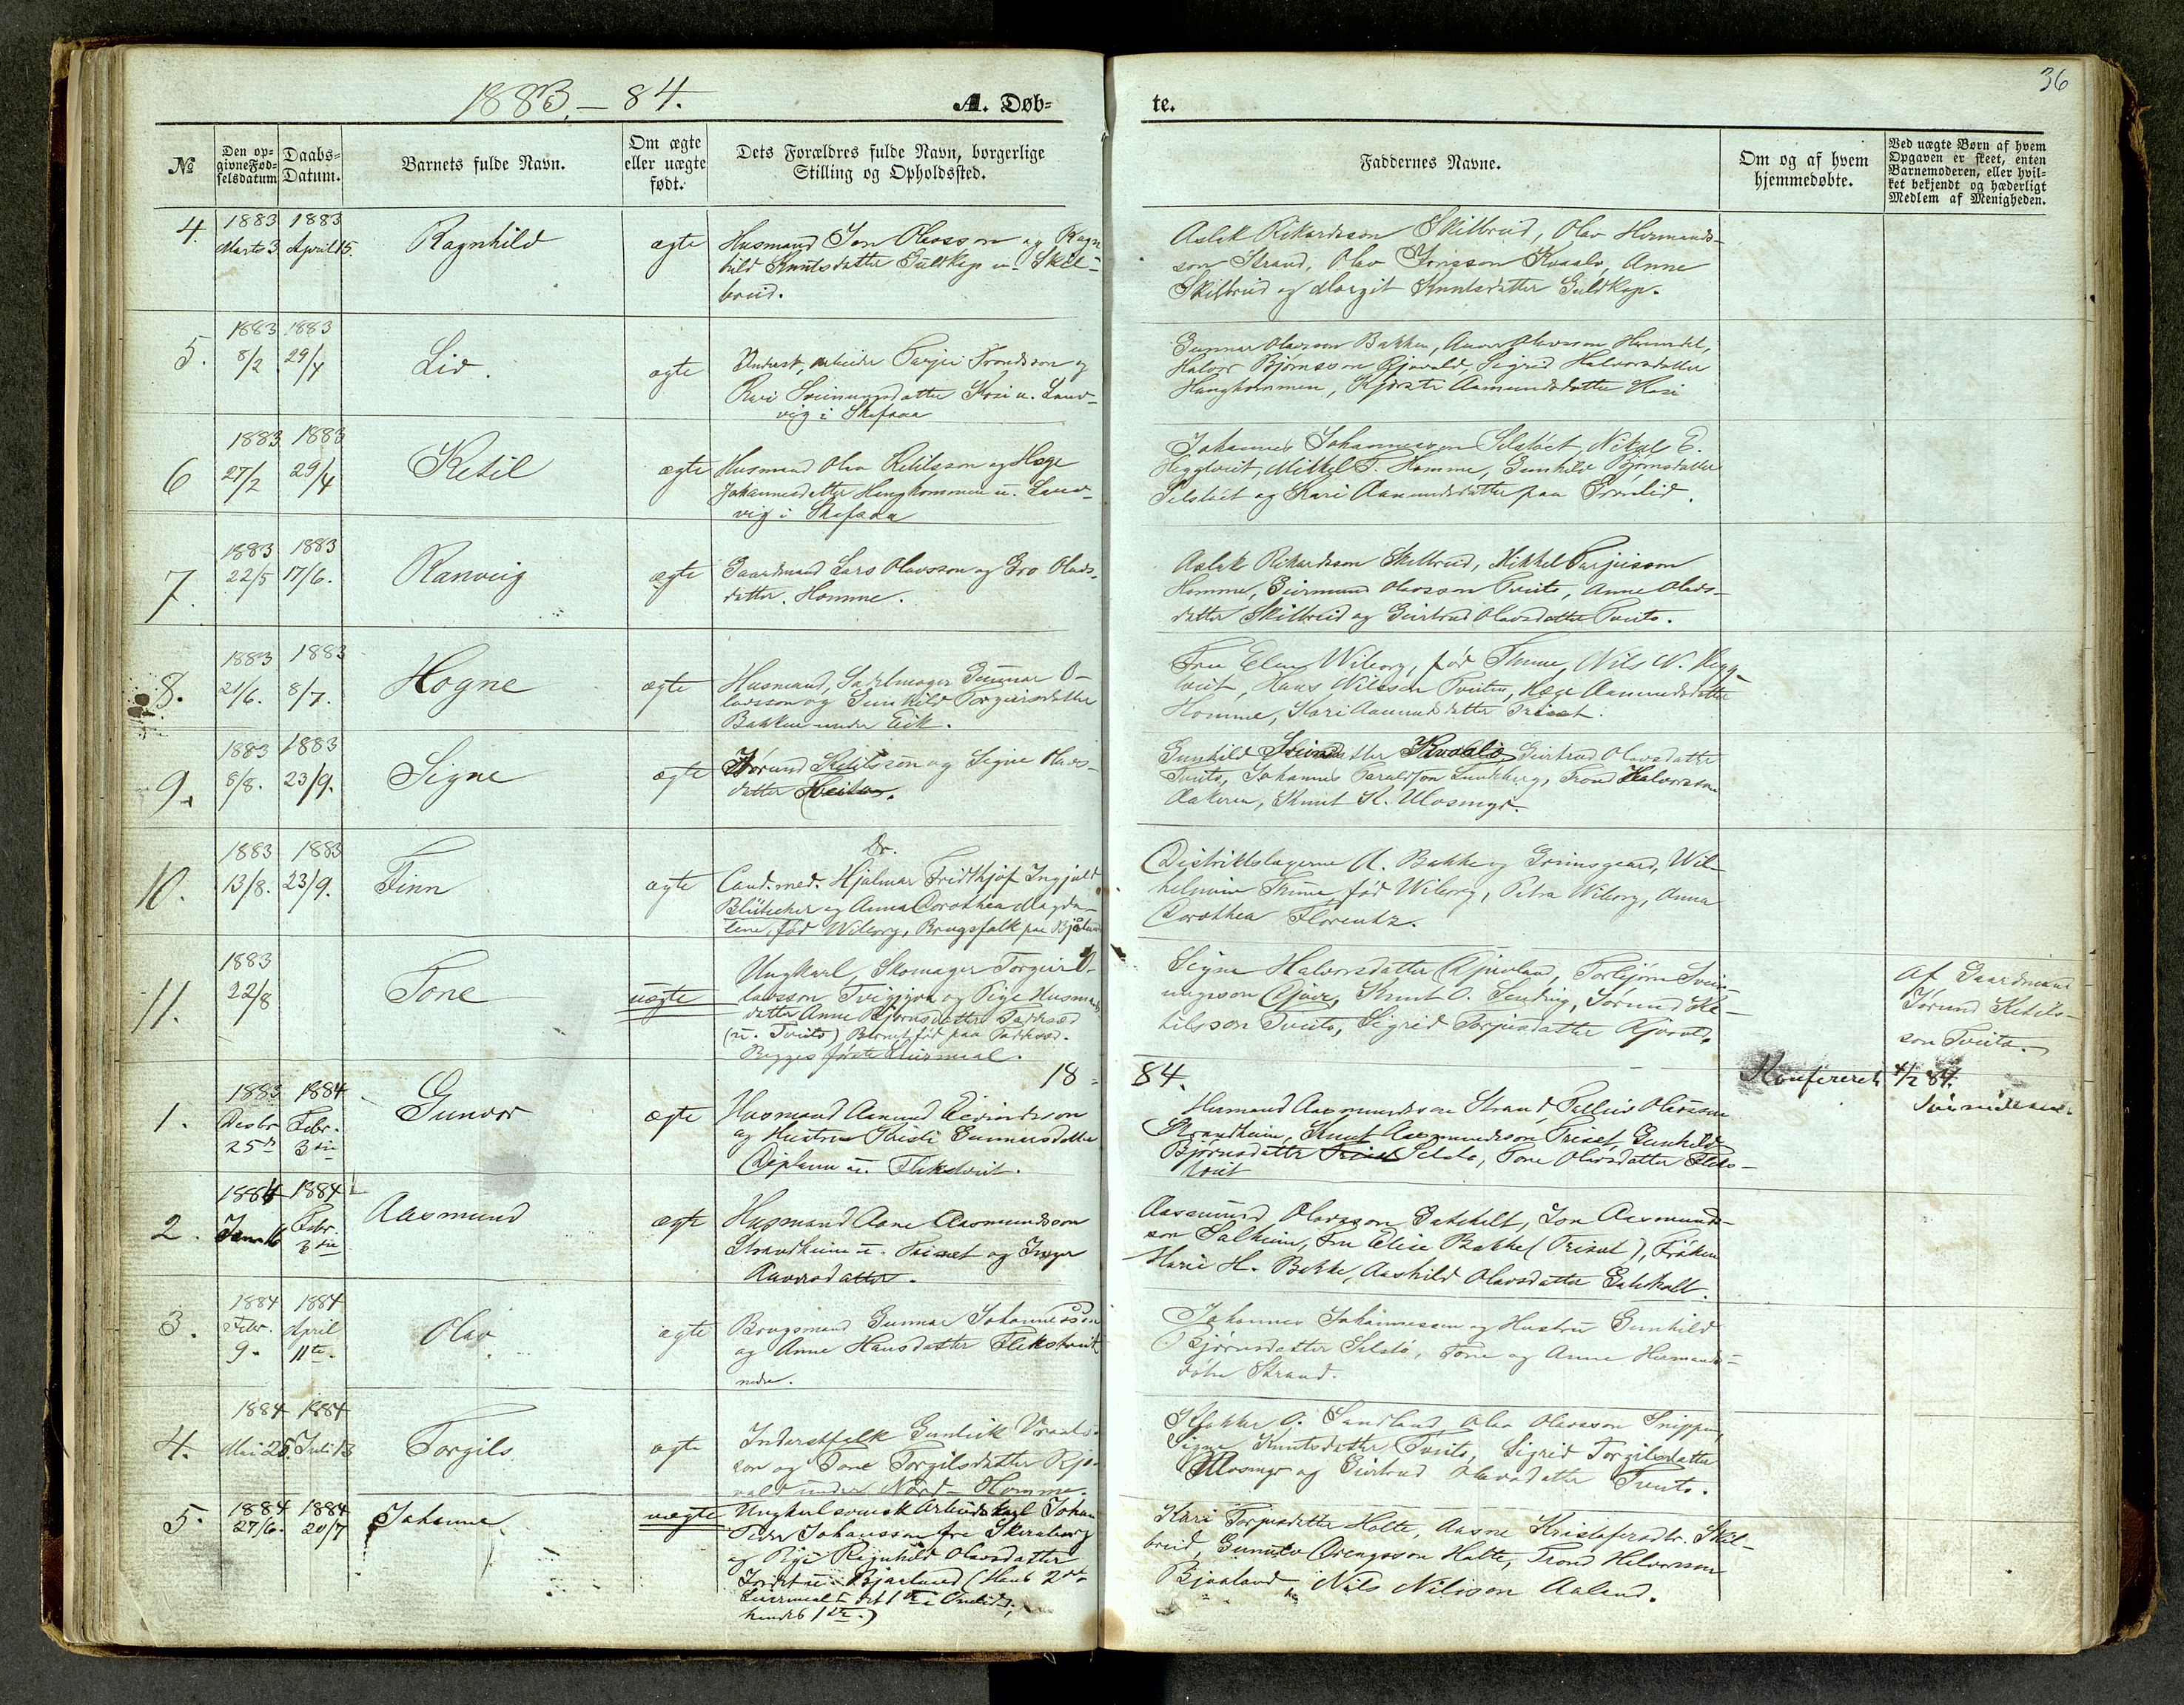 36
1883. - 84.
A. Døb-
te.
№
Den op-
givne Fød-
selsdatum
Daabs-
Datum.
Barnets fulde Navn.
Om ægte
eller uægte
født.
Dets Forældres fulde Navn, borgerlige
Stilling og Opholdssted.
Faddernes Navne.
Om og af hvem
hjemmedøbte.
Ved uægte Børn af hvem
Opgaven er skeet, enten
Barnemoderen, eller hvil-
ket bekjendt og hæderligt
Medlem af Menigheden.
4.
1883
Marts 3
1883
April 15.
Ragnhild
ægte
Husmand Jon Olavsson og Ragn
hild Knutsdatter Guldkop u. Skil-
breid.
Aslak Rikardsson Skilbreid, Olav Hermands-
son Strand, Olav Jonsson Kvaalo, Anne
Skilbreid og Margit Knutsdatter Guldkop.
5.
1883
8/2
1883
29/4
Liv.
ægte
Inderst, arbeider Tarjei Trondsson og
Ravi Sveinungsdatter Kosi u. Land-
vig i Skafsaa
Gunnar Olavsson Bakken,
Halvor Bjørnsson Gjovald, Sigrid Halvorsdatter
Haugkommen, Kjersti Aamundsdatter Kosi
6
1883
27/2
1883
29/4
Ketil
ægte
Husmand Olav Ketilsson og Hæge
Johannesdatter Haugkommen u. Land-
vig i Skafsaa
Johannes Johannesson Selstøit, Nikuls E.
Heggtveit, Mikkel T. Homme, Gunhild Bjørnsdatter
Selstøit og Kari Aamundsdatter paa
7.
1883
22/5
1883
17/6.
Ranveig
ægte
Gaardmand Lars Olavsson og Gro Olavs-
datter. Homme.
Aslak Rikardsson Skilbreid, Mikkel Tarjeisson
Homme, Geirmund Olavsson Tveito, Anne Olavs-
datter Skilbreid og Geirtrud Olavsdatter Tveito.
8.
1883
21/6.
1883
8/7.
Hogne
ægte
Husmand, Sadelmager Gunnar O-
lavsson og Gunhild Torgeirsdatter
Bakken under Eik.
Fru Elen Wiborg, fød Thime, Nils N. Hegg
tveit, Hans Nilsson Tveiten, Hæge Aamundsdatter
Homme, Kari Aamundsdatter Triset.
9.
1883
8/8.
1883
23/9.
Signe
ægte
Jørund Ketilsson og Signe Olavs-
datter Tveiten.
Gunhild Kvaalo Geirtrud Olavsdatter
Tveito, Johannes Taraldson Landberg, Trond Halvorsson
Aakeren, Knut K. Ulvsmyr.
10.
1883
13/8.
1883
23/9.
Finn
ægte
Dr.
Cand. med. Hjalmar Fridthjof Ingjald
Blütecher og Anna Dorothea Magda-
lene, fød Wiborg, Brugsfolk paa
Distriktslægerne A. Bakke og Grimsgaard, Wil-
helmine Thime fød Wiborg, Petra Wiborg, Anna
Dorothea Florentz.
11.
1883
22/8
Tone
uægte
Ungkarl, Skomager Torgeir O-
lavsson og Pige Husmands
datter Anne Bjørnsdatter
(u. Tveito) Barnet født paa
Begges første Leiermaal.
Signe Halvorsdatter Gjuvland, Torbjørn Svein-
ungsson Gjuve, Knut O. Sending, Jørund Ke-
tilsson Tveito, Sigrid Torjusdatter Gjovald.
Af Gaardmand
Jørund Ketils-
son Tveito.
18-
84.
Konfereret 4/2 84.
1.
1883
Desbr
25de
1884
Febr.
3die
Gunvor
ægte
Husmand Aamund Eivindsson
og Hustru Kristi Gunnarsdatter
u. Flekstveit.
Hermand Aasmundsson Strand, Tellev Olavsson
Strandheim, Knut Aasmundsson Triset, Gunhild
Bjørnsdatter Triset Selstø, Tone Olavsdatter Fleks-
tveit
2.
1884
Janr 16
1884
Febr.
3die
Aasmund
ægte
Husmand Aane Aasmundsson
Strandheim u. Triset og Inger
Aavesdatter.
Aasmund Olavsson Gatekelt, Jon Aasmund-
son Salheim, Fru Elise Bakke (Triset), Frøken
Marie H. Bakke, Aashild Olavsdatter
3.
1884
Febr.
9.
1884
April
11te.
Olav
ægte
Brugsmand Gunnar Johannesson
og Anne Hansdatter Flekstveit
nedre.
Johannes Johannessen og Hustru Gunhild
Bjørnsdatter Selstø, Tone og Anne Hermands-
døtre Strand.
4.
1884
Mai 25.
1884
Juli 13
Torgils
ægte
Inderstfolk Gunleik Vraals-
son og Tone Torgilsdatter Kjo-
vald under Nord-Homme.
O. Sandland, Olav Olavsson Snippen,
Signe Knutsdatter Tveito, Sigrid Torgilsdatter
Ulvsmyr og Geirtrud Olavsdatter Tveito.
5.
1884
27/6.
1884
20/7
Johanne
uægte
Ungkarl svensk Arbeidskarl Johan
Peder Johansson fra
og Pige Ragnhild Olavsdatter
u. Bjaaland (Hans 2det
Leiermaal, det 1ste i Omlid,
hendes 1ste.)
Kari Torjusdatter Holte, Aasne Kristofersdtr. Skil-
breid, Gunulv Drengsson Holte, Trond Halvorsson
Bjaaland, Nils Nilsson Aaland.